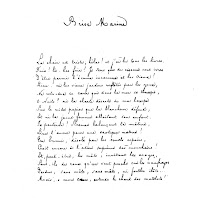 Brise Marine
La chair est triste, hélas ! et j'ai lu tous les livres.
Fuir ! là-bas fuir ! Je sens que des oiseaux sont ivres
D'être parmi l'écume inconnue et les cieux !
Rien, ni les vieux jardins reflétés par les yeux
Ne retiendra ce cœur qui dans la mer se trempe,
O nuits ! ni la clarté déserte de ma lampe
Sur le vide papier que la blancheur défend,
Et ni la jeune femme allaitant son enfant.
Je partirai ! Steamer balançant ta mâture,
Lève l'ancre pour une exotique nature !
Un Ennui, désolé par les cruels espoirs,
Croit encore à l'adieu suprême des mouchoirs !
Et, peut-être, les mâts, invitant les orages,
Sont-ils de ceux qu'un vent penche sur les naufrages
Perdus, sans mâts, sans mâts, ni fertiles îlots...
Mais, ô mon cœur, entends le chant des matelots !